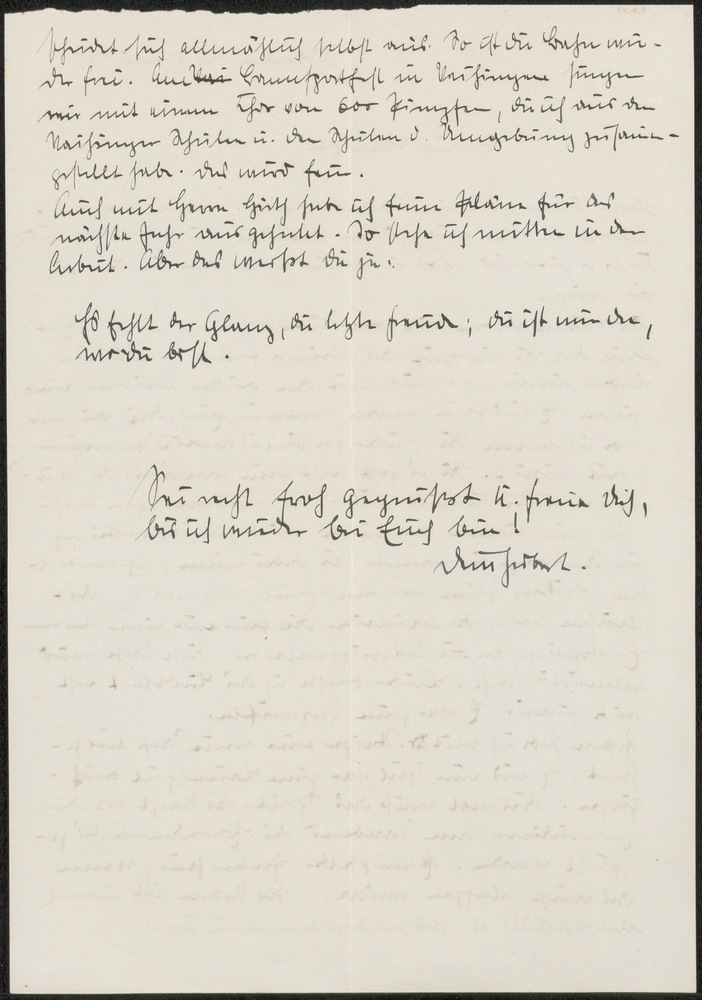 scheidet sich allmählich selbst aus. So ist die Bahn wie-
der frei. Am Bannsportfest in Vaihingen singen
wir mit einem Chor von 600 Pimpfen, die ich aus den
Vaihinger Schulen u. den Schulen d. Umgebung zusammen-
gestellt habe. das wird fein.
Auch mit Herrn habe ich feine Pläne für das
nächste Jahr ausgeheckt. So stehe ich mitten in der
Arbeit. Aber das weißt du ja.
Es fehlt der Glanz, die letzte Freude; die ist nur da,
wo du bist.
Sei recht froh gegrüßt u. freue Dich,
bis ich wieder bei Euch bin!
Dein Herbert.